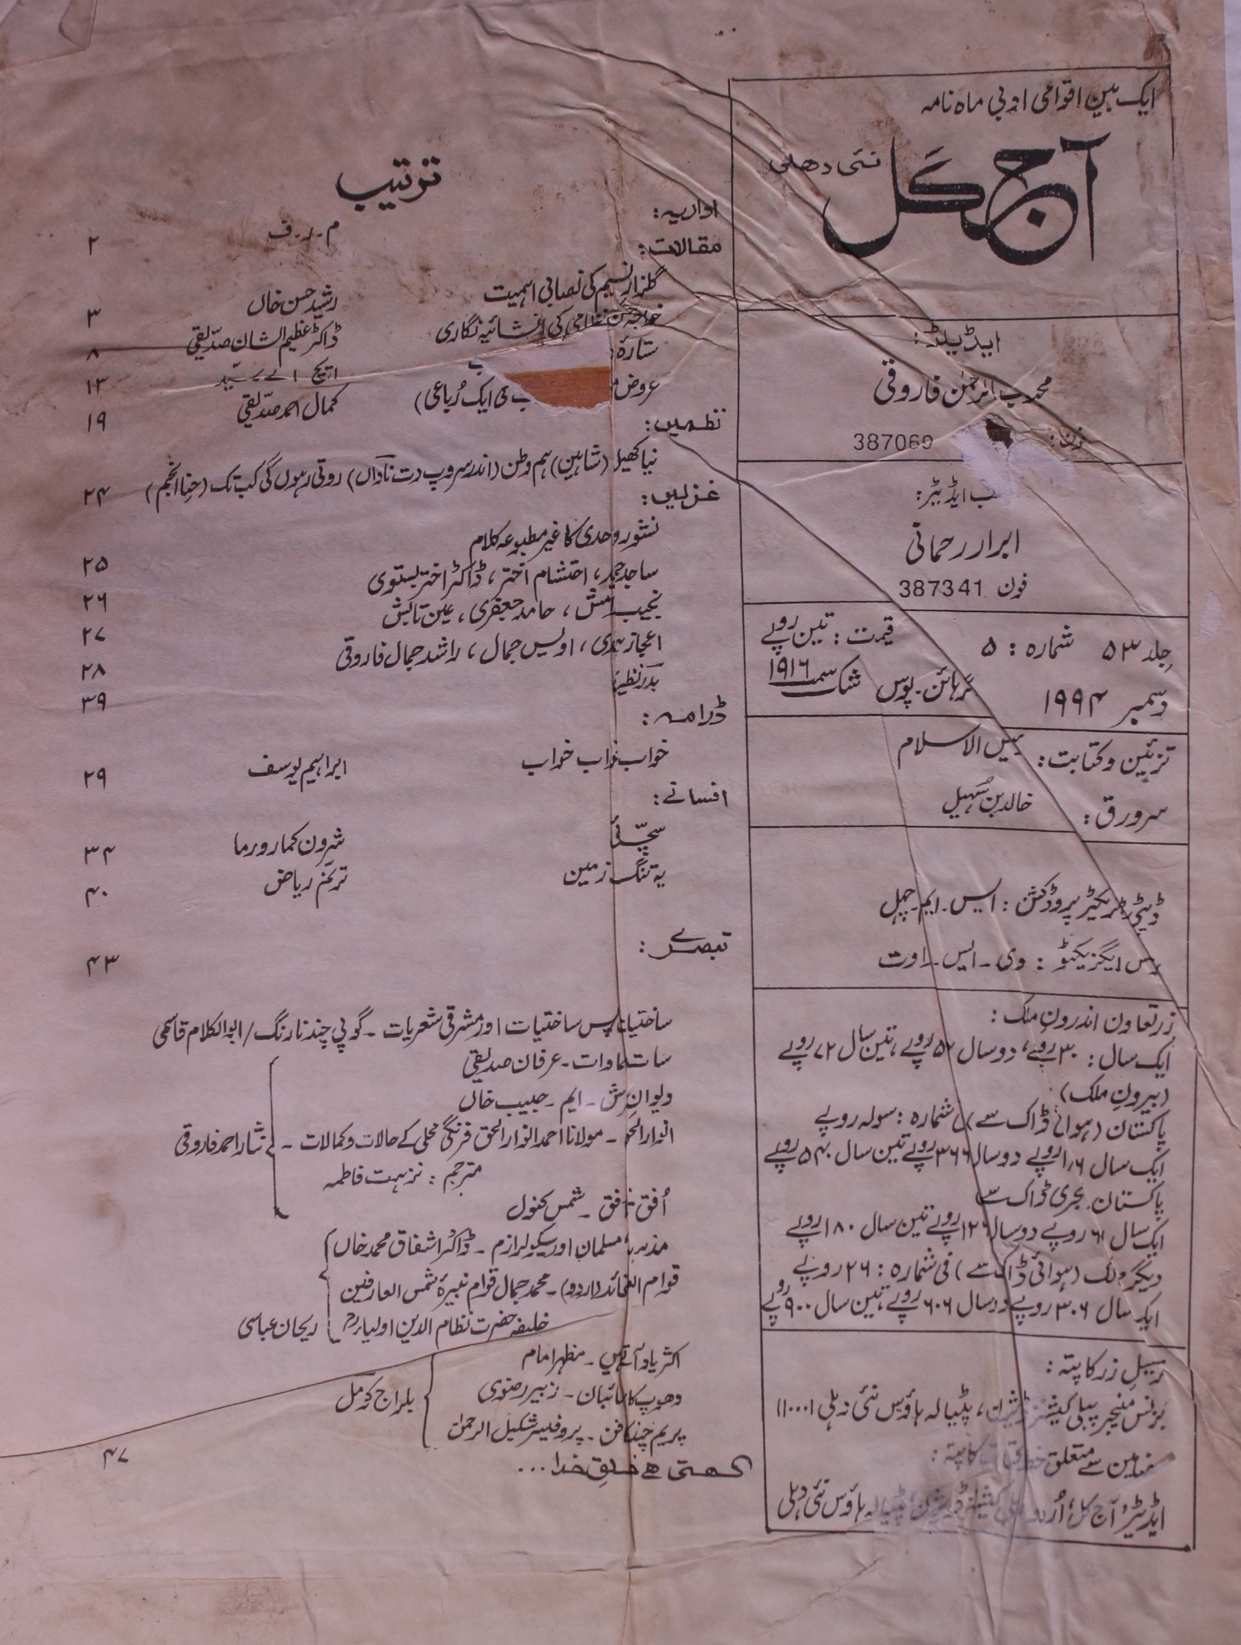 ایک بین اقوامی ادبی ماہ نامہ
آج کل نئی دھلی
ایڈیٹر:
محبوب الرحمٰن فاروقی
فون: 387069
سب ایڈیٹر:
ابرار رحمانی
فون 387341
جلد ۵۳ شمارہ: ۵ قیمت: تین روپے
دسمبر ۱۹۹۴ اگرہائن۔پوس شک سمت ۱۹۱۶
تزئین و کتابت: الاسلام
سرورق: خالد بن سہیل
ڈپٹی ڈائریکٹر پروڈکشن: ایس۔ایم۔چہل
بزنس ایگزیکیٹو: وی۔ایس۔راوت
زر تعاون اندرون ملک:
ایک سال: ۳۰ روپے، دو سال ۵۲ روپے، تین سال ۷۲ روپے
(بیرون ملک)
پاکستان (ہوائی ڈاک سے) فی شمارہ: سولہ روپے
ایک سال ۱۸۶ روپے دو سال ۳۶۶ روپے تین سال ۵۴۰ روپے
پاکستان بحری ڈاک سے
ایک سال ۶۱ روپے دو سال ۱۲۶ روپے تین سال ۱۸۰ روپے
دیگر ملک (ہوائی ڈاک سے) فی شمارہ: ۲۶ روپے
ایک سال ۳۰۶ روپے دو سال ۶۰۶ روپے تین سال ۹۰۰ روپے
ترسیل زر کا پتہ:
بزنس منیجر پبلی کیشنز ڈویژن، پٹیالہ ہاؤس نئی دہلی ۱۱۰۰۰۱
مضامین سے متعلق خط و کتابت کا پتہ:
ایڈیٹر آج کل اُردو پبلی کیشنز ڈویژن پٹیالہ ہاؤس نئی دہلی
ترتیب
اداریہ:
م۔ر۔ف ۲
مقالات:
گلزار نسیم کی نصابی اہمیت رشید حسن خاں ۳
خواجہ حسن نظامی کی انشائیہ نگاری ڈاکٹر عظیم الشان صدیقی ۸
ستارہ ایچ اے سید ۱۳
عروض کی ایک رُباعی) کمال احمد صدیقی ۱۹
نظمیں:
نیا کھیل (شاہین) ہم وطن (اندر سروپ دت ناداں) روتی رہوں گی کب تک (حنا انجم) ۲۴
غزلیں:
نشور واحدی کا غیر مطبوعہ کلام ۲۵
ساجد حمید، احتشام اختر، ڈاکٹر اختر بستوی ۲۶
نجیب رامش، حامد جعفری، عین تابش ۲۷
اعجاز ہمدی، اویس جمال، راشد جمال فاروقی ۲۸
بدر نظیر ۳۹
ڈرامہ:
خواب خواب خواب ابراہیم یوسف ۲۹
افسانے:
سچّائی شرون کمار ورما ۳۴
یہ تنگ زمین ترنم ریاض ۴۰
تبصرے: ۴۳
ساختیات پس ساختیات اور مشرقی شعریات۔گوپی چند نارنگ/ابوالکلام قاسمی
سات سماوات۔عرفان صدیقی
دیوان ش۔ایم۔حبیب خاں
انوار الحق۔مولانا احمد انوار الحق فرنگی محلی کے حالات و کمالات۔ نثار احمد فاروقی
مترجم: نزہت فاطمہ
اُفق تا فق۔شمس کنول
مذہب، مسلمان اور سیکولرازم۔ڈاکٹر اشفاق محمد خاں
قوام العقائد (اردو)۔محمد جمال قوام نبیرۂ شمس العارفین
خلیفہ حضرت نظام الدین اولیاء رح ریحان عباسی
اکثر یاد آتے ہیں۔مظہر امام
دھوپ کا سائبان۔زبیر رضوی بلراج کومل
پریم چند کا فن۔پروفیسر شکیل الرحمٰن
کہتی ہے خلق خدا... ۴۷